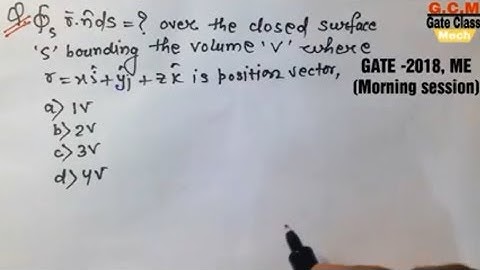 Q. ∮s r̄.n̂ds = ? over the closed surface
's' bounding the volume 'V' where
r = xî + yĵ + zk̂ is position vector,
a) 1V
b) 2V
c) 3V
d) 4V
G.C.M
Gate Class
Mech
GATE -2018, ME
(Morning session)